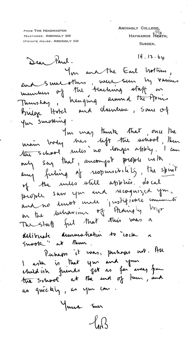 FROM THE HEADMASTER
ARDINGLY COLLEGE,
HAYWARDS HEATH,
SUSSEX.
Dear Paul.
You and the Earl
and some others were seen by various
members of the teaching staff on
Thursday, hanging around the
Bridge Hotel and elsewhere, some of
you smoking.
You may think that once the
main body has left the school, then
the school rules no longer apply. I can
only say that amongst people with
any feeling of responsibility, the spirit
of the rules still applies. Local
people saw you and recognised you,
and no doubt made justifiable comments
on the behaviour of Ardingly boys.
The staff felt that this was a
deliberate demonstration to "cock a
snook" at them.
Perhaps it was, perhaps not. All
I ask is that you and your
childish friends get as far away from
the School at the end of term, and
as quickly, as you can.
Yours